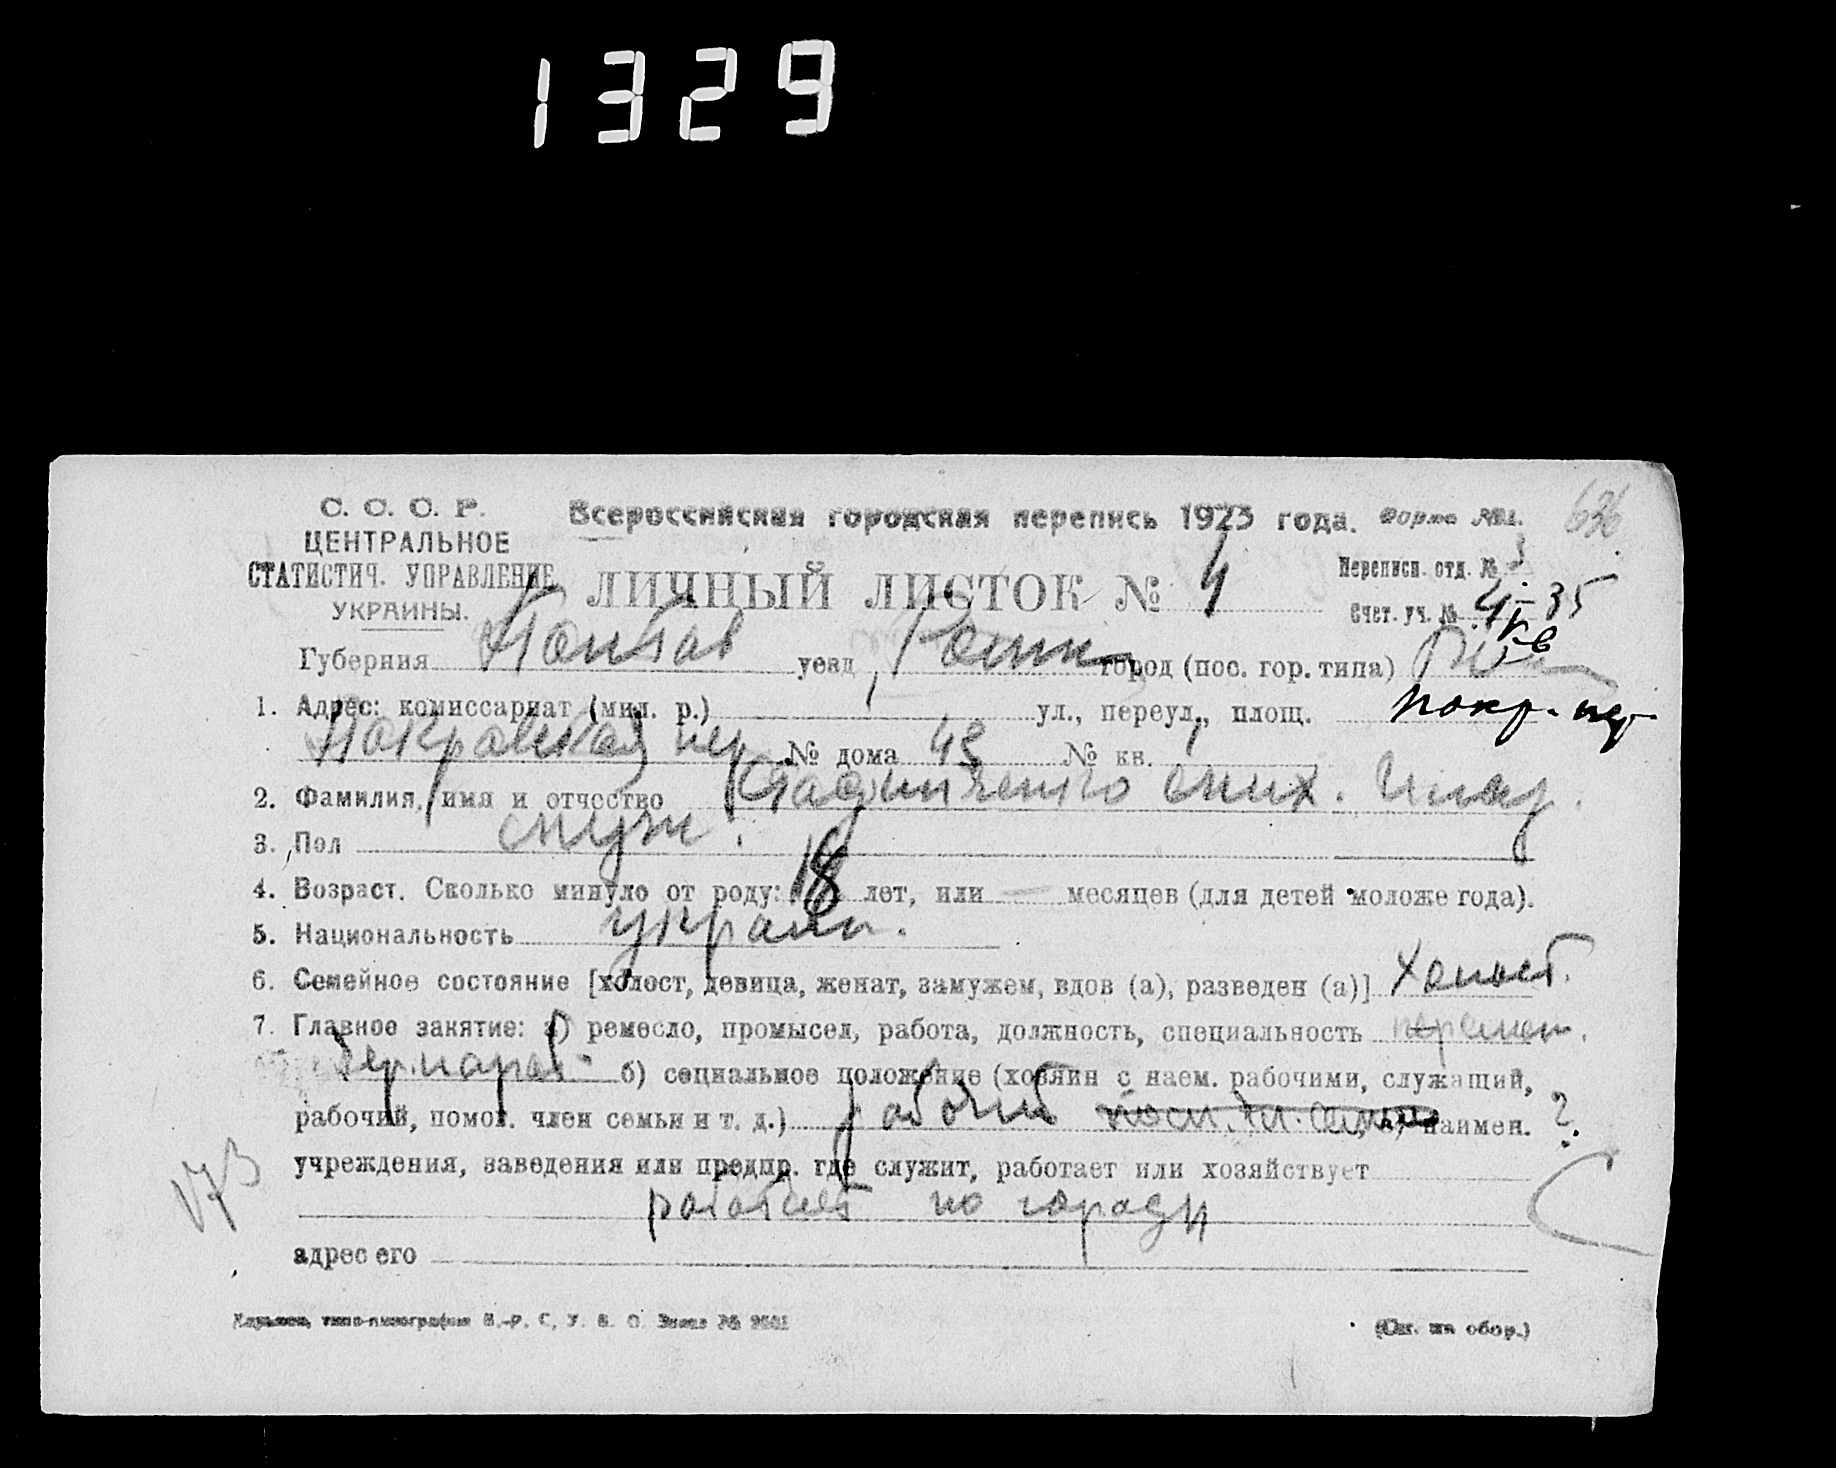 1329
С. С. С. Р.
ЦЕНТРАЛЬНОЕ
СТАТИСТИЧ. УПРАВЛЕНИЕ
УКРАИНЫ.
Всероссийская городская перепись 1923 года. Форма №1.
636
ЛИЧНЫЙ ЛИСТОК № 4
Переписн. отд. № 3
Счет. уч. № 4-35
Губерния Полтав уезд Ромн город (пос. гор. типа)
1. Адрес: комиссариат (мил. р.) ул., переул., площ. покр. пер.
Покровская пер № дома 43 № кв.
2. Фамилия, имя и отчество Мих.
3. Пол муж.
4. Возраст. Сколько минуло от роду: 18 лет, или — месяцев (для детей моложе года).
5. Национальность украин.
6. Семейное состояние [холост, девица, женат, замужем, вдов (а), разведен (а)] холост.
7. Главное занятие: а) ремесло, промысел, работа, должность, специальность
б) социальное положение (хозяин с наем. рабочими, служащий,
рабочий, помог. член семьи и т. д.) рабочий наимен. ?
учреждения, заведения или предпр. где служит, работает или хозяйствует
173
работает по городу
адрес его
(См. на обор.)